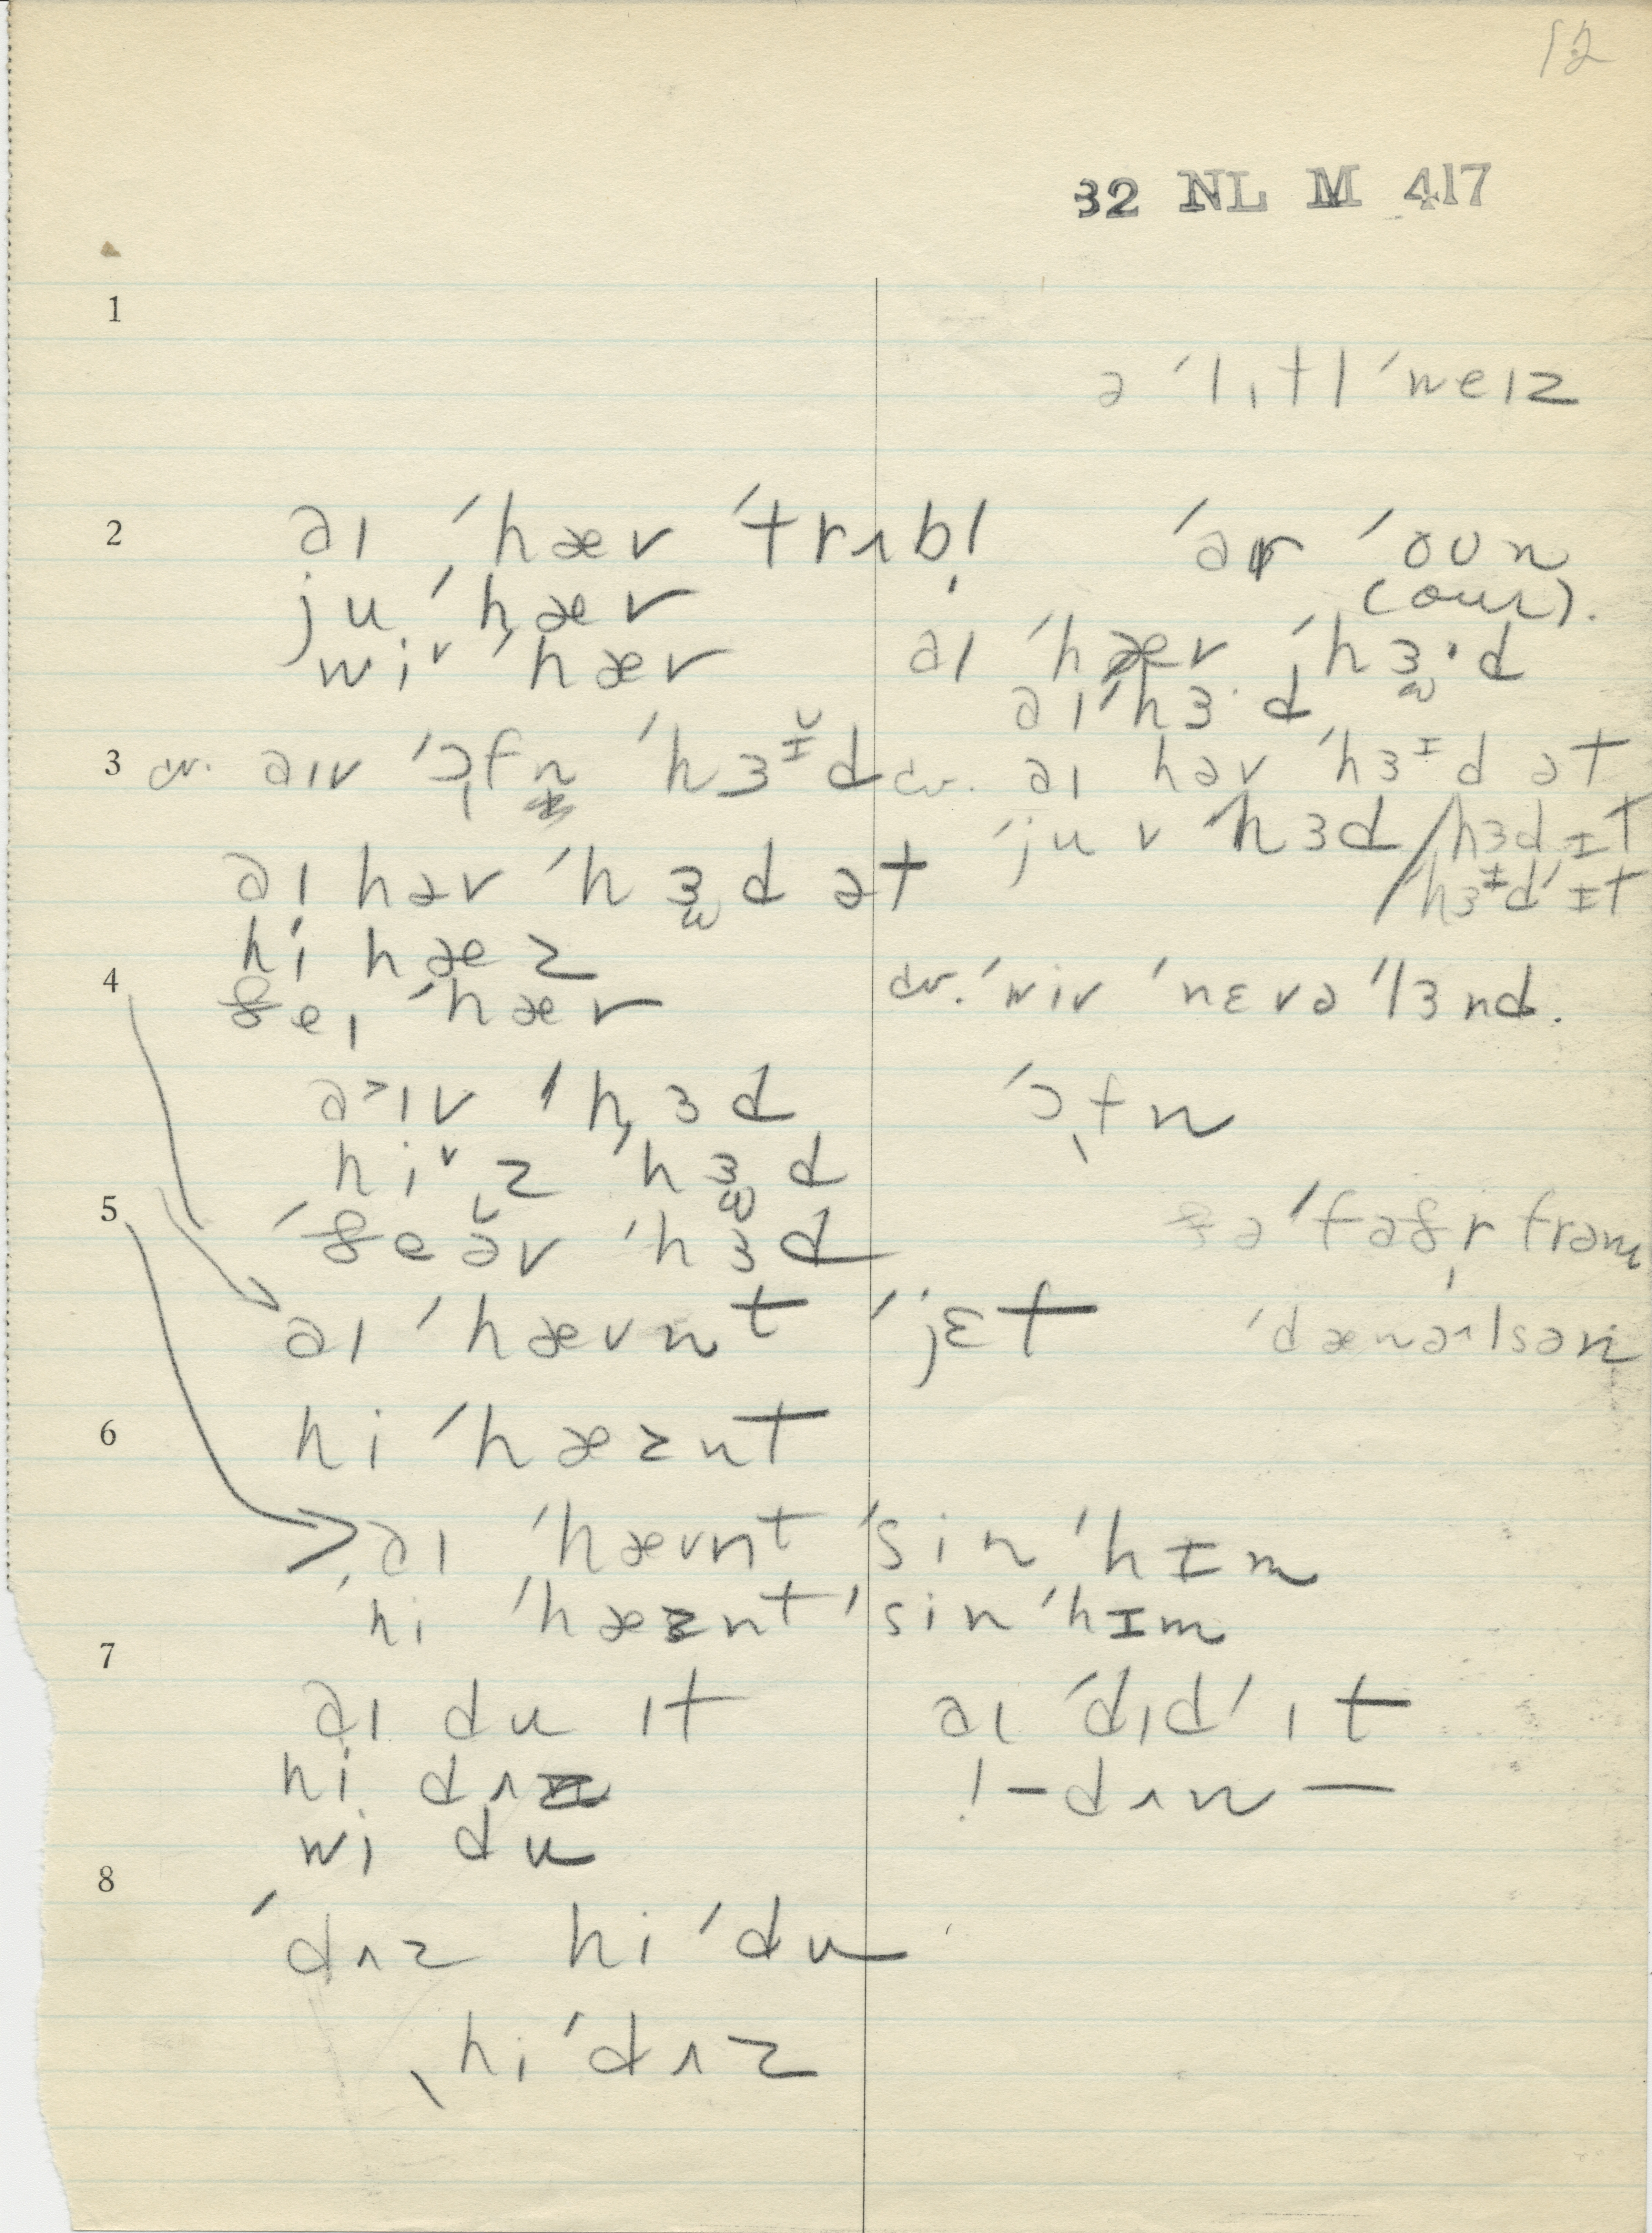 12
32 NL M 417
1
ə ˈlɪtl ˈweɪz
2 aɪ ˈhæv ˈtrʌbl̩ ˈar ˈoʊn
ju ˈhæv (our).
wiᵛ ˈhæv aɪ ˈhæv ˈhɜ·d
aɪ ˈhɜ·d
3 cv. aɪv ˈɔfn ˈhɜᶦ̆d cv. aɪ həv ˈhɜᶦd ət
ˈju v ˈhɜd / hɜd ɪt
aɪ həv ˈhɜd ət / hɜᶦdˈ ɪt
hi hæz
4 ðeɪ ˈhæv cv. ˈwiv ˈnɛvə ˈlɜnd.
a˃ɪv ˈhɜd ˈɔfn
hiᵛz ˈhɜd
5 ˈðeə̆v ˈhɜd ðə ˈfaðr̩ frəm
aɪ ˈhævnt ˈjɛt ˈdænəlsən
6 hi ˈhæznt
aɪ ˈhævnt ˈsin ˈhɪm
ˈhi ˈhæznt ˈsin ˈhɪm
7
aɪ du ɪt aɪ ˈdɪdˈ ɪt
hi dʌz ! – dʌn —
wi du
8
ˈdʌz hi ˈdu
ˌhi ˈdʌz